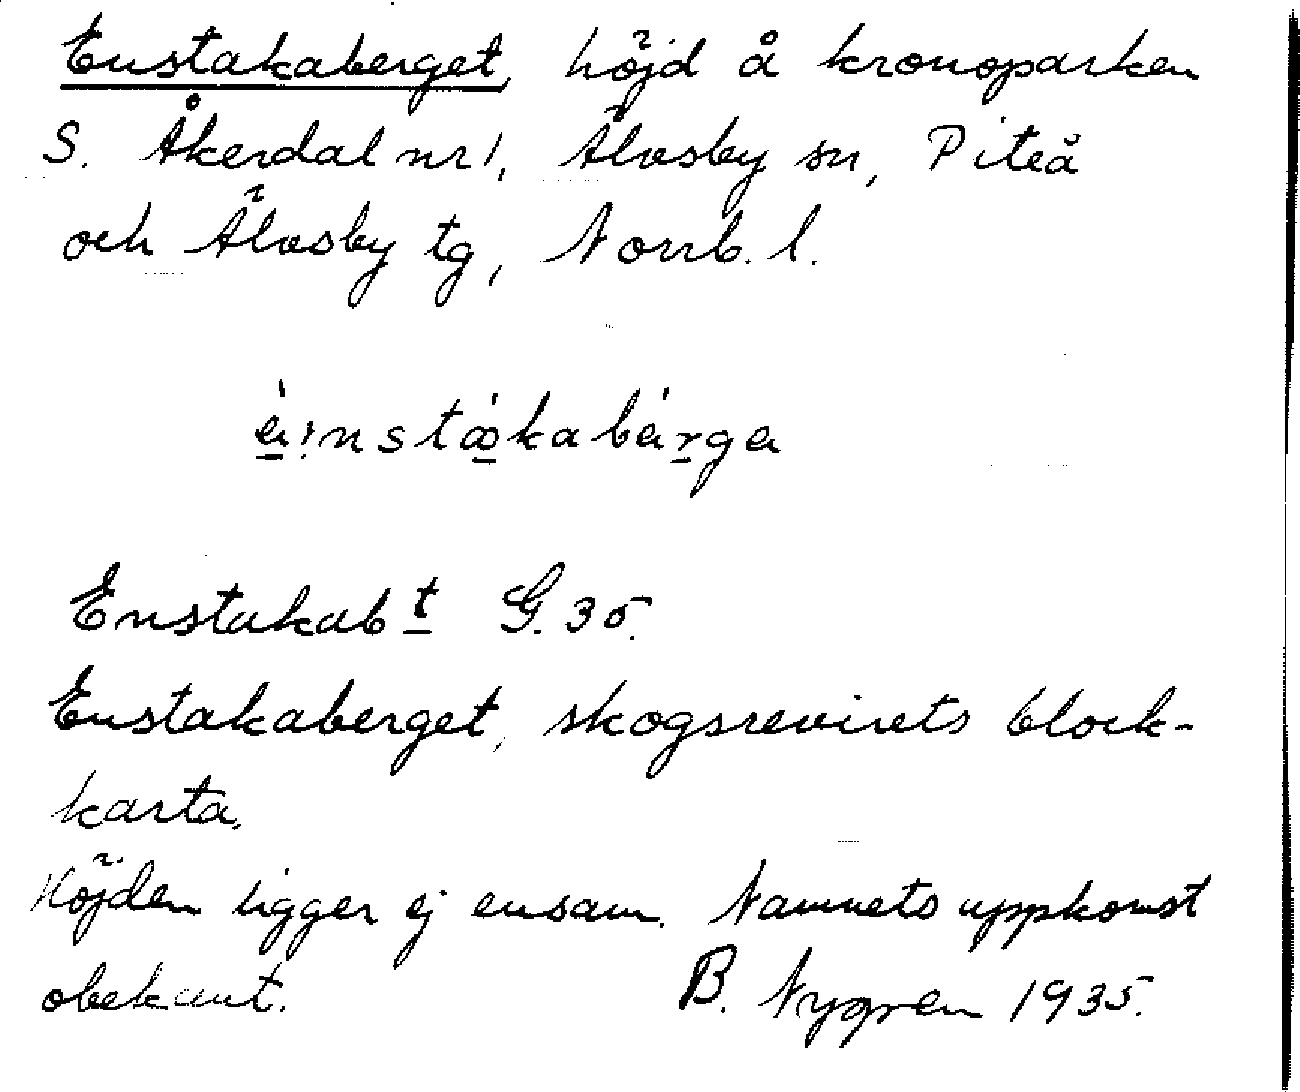 Enstakaberget, höjd å kronoparken
S. Åkerdal nr 1, Älvsby sn, Piteå
och Älvsby tg, Norrb. l.
Enstakab t G. 35.
Enstakaberget, skogsrevirets block-
karta.
Höjden ligger ej ensam. Namnets uppkomst
obekant. B. Nygren 1935.